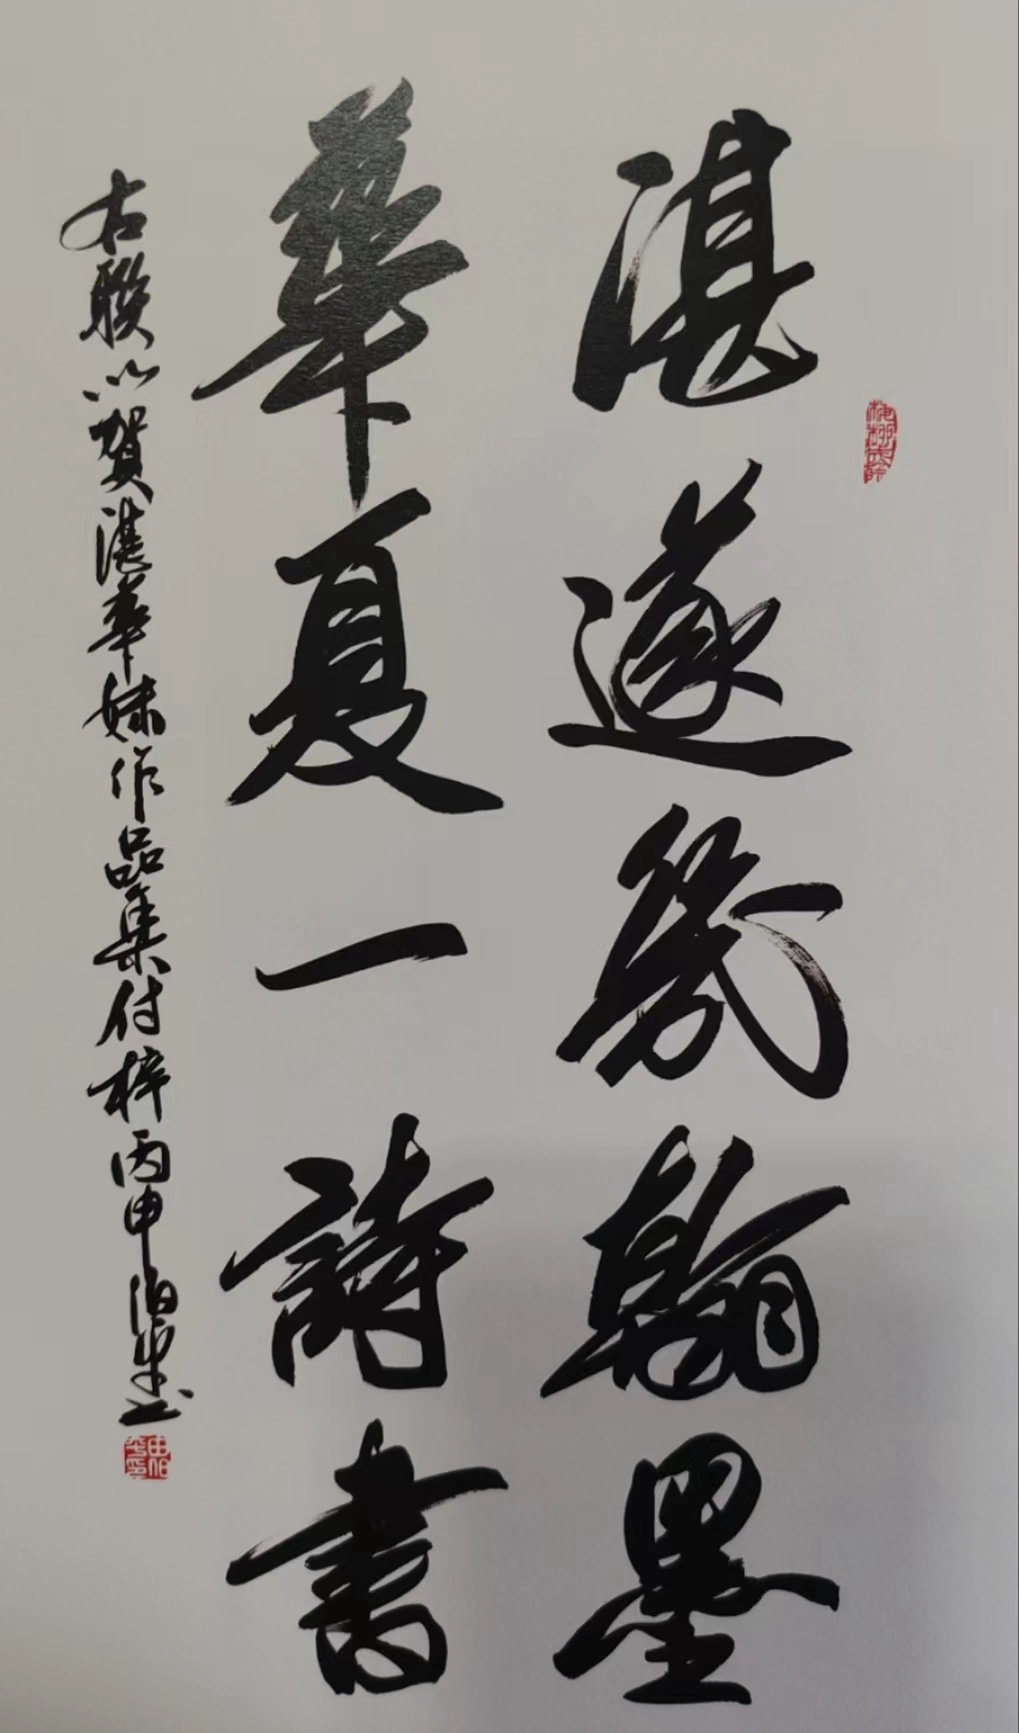 湛邃幾翰墨
華夏一詩書
右聯以賀湛華妹作品集付梓丙申伯平書